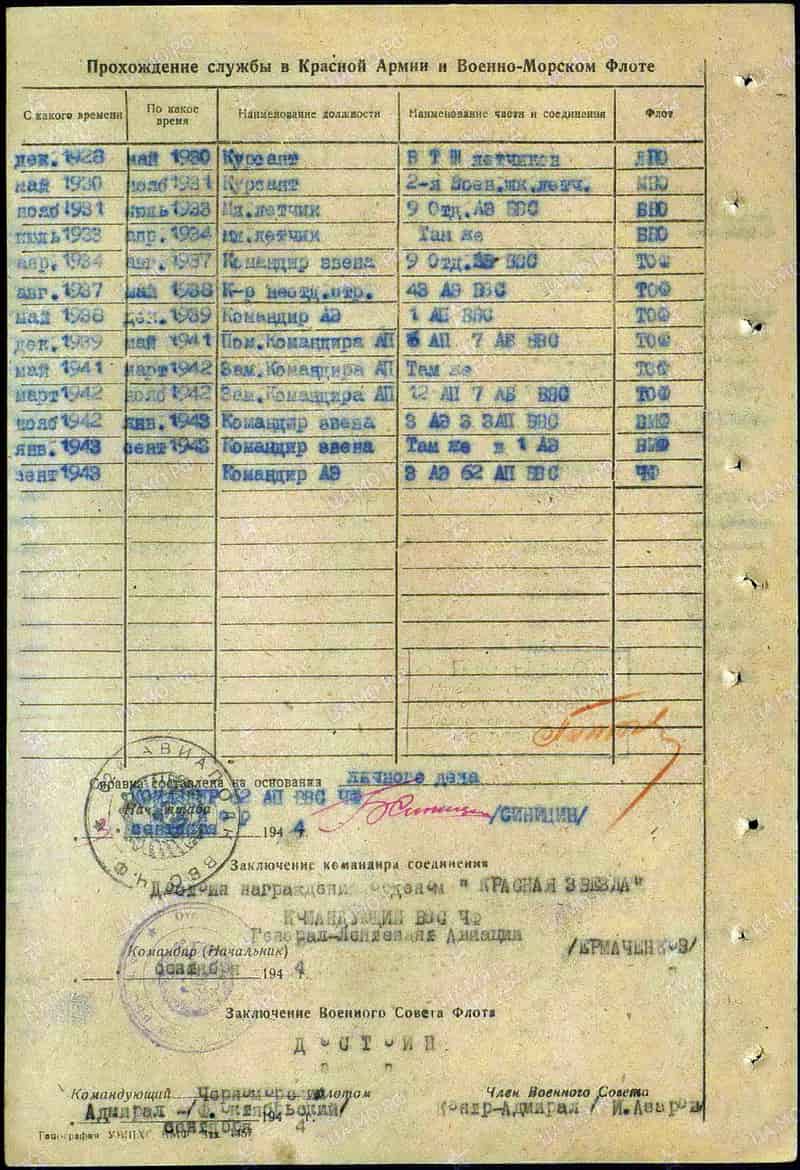 Прохождение службы в Красной Армии и Военно-Морском Флоте
С какого времени | По какое время | Наименование должности | Наименование части и соединения | Флот
дек. 1928 | май 1930 | Курсант | В Т Ш летчиков | ЛВО
май 1930 | нояб 1931 | Курсант | 2-я Воен.шк.летч.
нояб 1931 | июль 1933 | Мл.летчик | 9 Отд.АЭ ВВС
июль 1933 | апр. 1934 | мл.летчик | Там же
апр. 1934 | авг. 1937 | Командир звена | 9 Отд.АЭ ВВС | ТОФ
авг. 1937 | май 1938 | К-р неотд.отр. | 43 АЭ ВВС | ТОФ
май 1938 | дек. 1939 | Командир АЭ | 1 АП ВВС | ТОФ
дек. 1939 | май 1941 | Пом.Командира АП | АП 7 АБ ВВС | ТОФ
май 1941 | март 1942 | Зам.Командира АП | Там же | ТОФ
март 1942 | нояб 1942 | Зам.Командира АП | 12 АП 7 АБ ВВС | ТОФ
нояб 1942 | янв. 1943 | Командир звена | 3 АЭ 3 ЗАП ВВС | ВМФ
янв. 1943 | сент 1943 | Командир звена | Там же в 1 АЭ | ВМФ
сент 1943 | Командир АЭ | 3 АЭ 62 АП ВВС | ЧФ
Справка составлена на основания личного дела
КОМАНДИР 62 АП ВВС ЧФ
Нач. штаба /СИНИЦИН/
сентября 1944
Заключение командира соединения
Достоин награждения орденом " КРАСНАЯ ЗВЕЗДА"
КОМАНДУЮЩИЙ ВВС ЧФ
Генерал-Лейтенант Авиации
Командир (Начальник) /ЕРМАЧЕНКОВ/
сентября 1944 г.
Заключение Военного Совета Флота
Д О С Т О И Н
Командующий Черноморск флотом Член Военного Совета
Адмирал -/Ф.Октябрьский/ Контр-Адмирал / И.Азаров
сентября 1944 г.